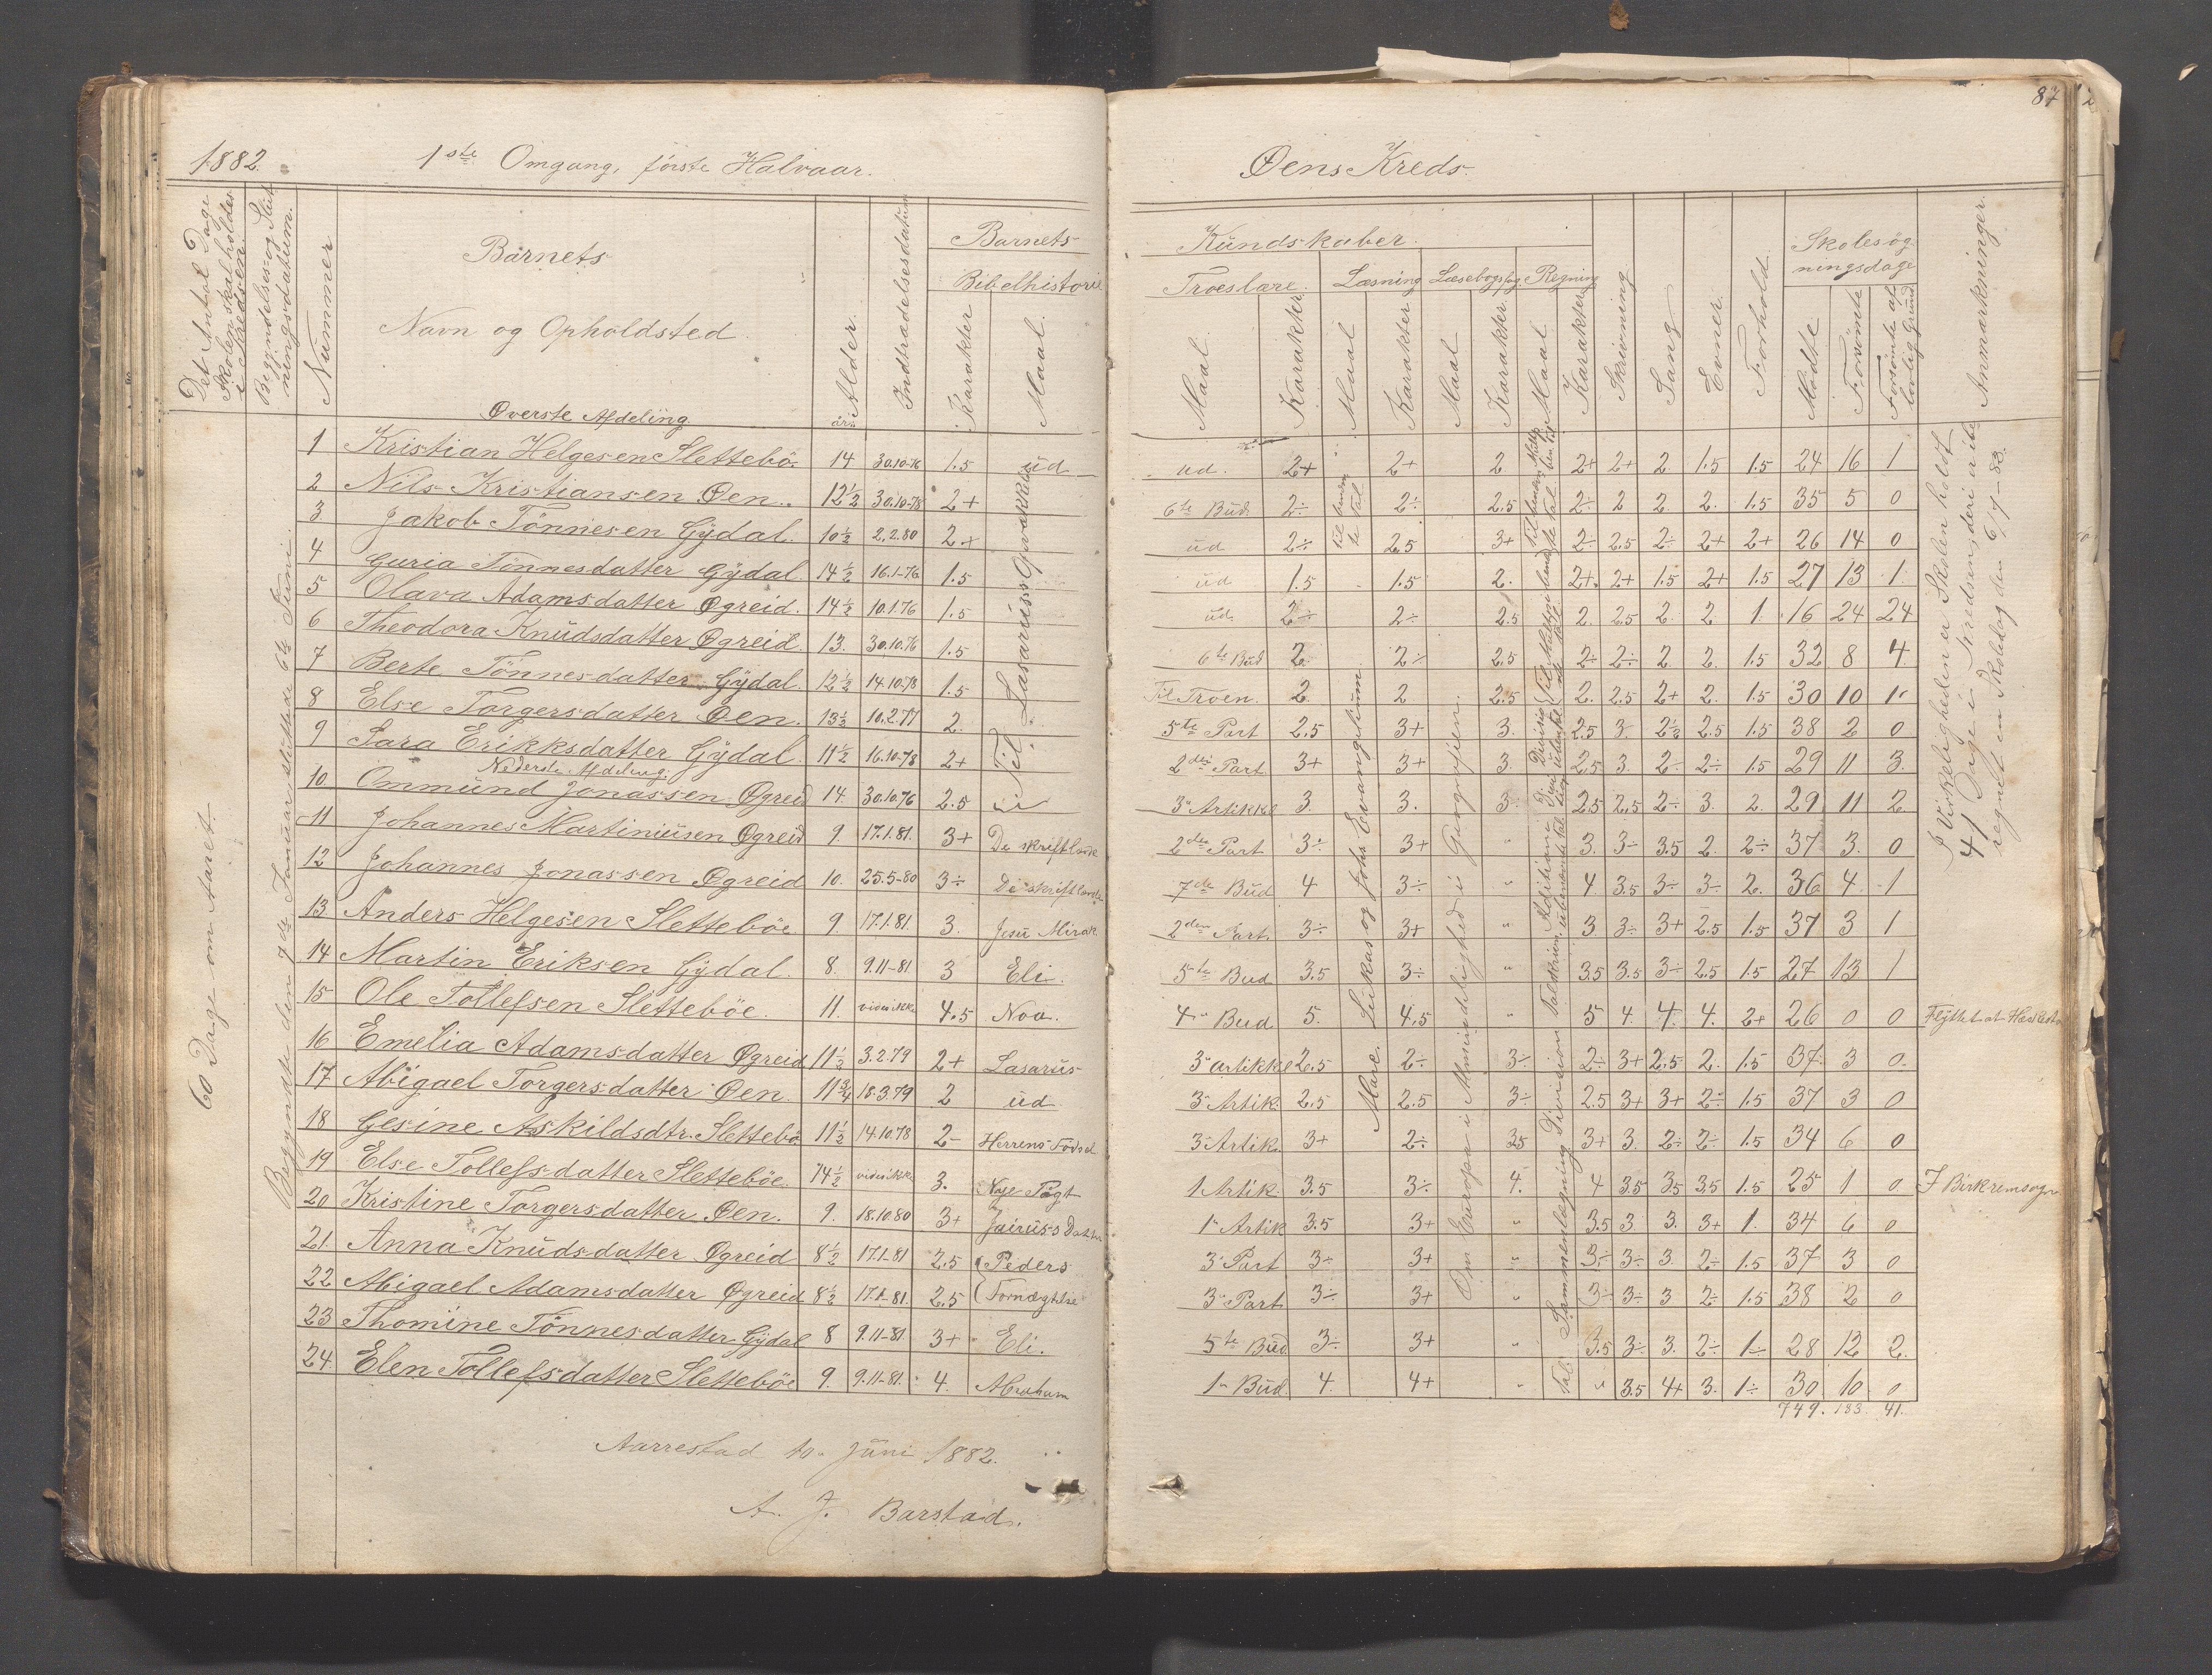 1882. 1ste Omgang, første Halvaar.
Det Antal Dage Skolen skal holdes i Kredsen.
Begyndelses- og Slutningsdatum.
Nummer
Barnets
Navn og Opholdsted.
Alder.
Indtrædelsesdatum
Barnets
Bibelhistorie
Karakter
Maal.
Øverste Afdeling.
år.
60 Dage om Aaret.
Begyndte den 7de Januar sluttede 6te Juni.
1 Kristian Helgesen Slettebö. 14 30.10-76 1.5 üd
2 Nils Kristiansen Øen. 12½ 30.10-78 2+
3 Jakob Tönnesen Gÿdal. 10½ 2.2.80 2+
4 Guria Tönnesdatter Gÿdal. 14½ 16.1-76 1.5
5 Olava Adamsdatter Øgreid. 14½ 10.1.76 1.5
6 Theodora Knüdsdatter Øgreid. 13. 30.10.76 1.5
7 Berte Tönnesdatter Gÿdal. 12½ 14.10.78 1.5
8 Else Torgersdatter Øen. 13½ 10.2.77 2.
9 Sara Erikksdatter Gÿdal. 11½ 16.10-78 2+
Til Lasarüs's Opvækkelse
Nederste Afdeling.
10 Ommünd Jonassen Øgreid 14. 30.10.76 2.5
11 Johannes Martiniüsen Øgreid 9. 17.1.81. 3+ De skriftlærde
12 Johannes Jonassen Øgreid 10. 25.5-80 3÷ De skriftlærde
13 Anders Helgesen Sletteböe 9. 17.1.81. 3. Jesü Mirak
14 Martin Eriksen Gÿdal. 8. 9.11-81. 3 Eli.
15 Ole Tollefsen Sletteböe. 11. vides ikke 4.5 Noa.
16 Emelia Adamsdatter Øgreid 11½ 3.2.79 2+ Lasarüs
17 Abigael Torgersdatter Øen. 11¾ 18.3.79 2 üd
18 Gesine Askildsdtr. Slettebö 11½ 14.10.78 2- Herrens Födsel
19 Else Tollefsdatter Sletteböe. 14½ vides ikke 3. Noje Pagt
20 Kristine Torgersdatter Øen. 9. 18.10.80 3+ Jairus's Datter
21. Anna Knüdsdatter Øgreid 8½ 17.1-81 2.5 Peders
22 Abigael Adamsdatter Øgreid 8½ 17.1-81. 2.5 Fornægtelse
23 Thomine Tönnesdatter Gÿdal 8 9.11-81. 3+ Eli.
24. Elen Tollefsdatter Sletteböe 9. 9.11-81. 4. Abraham
Aarrestad 10. Jüni 1882.
A. J. Barstad.
87
Øens Kreds.
Kündskaber.
Troeslære. Læsning Læsebogsfag. Regning
Maal. Karakter. Maal Karakter Maal Karakter. Maal. Karakter.
Skrivning. Sang Evner. Forhold
Skolesøgningsdage
Mødte Forsømte Forsømte af lovlig Grund
Anmærkninger.
ud. 2+ 2+ 2 2+ 2+ 2 1.5 1.5 24 16 1
6te Bud. 2÷ 2÷ 2.5 2÷ 2 2. 2. 1.5 35 5 0
üd 2÷ 2.5 3+ 2÷ 2.5 2÷ 2+ 2+ 26 14 0
üd 1.5 1.5 2. 2+ 2+ 1.5 2+ 1.5 27 13 1.
üd. 2÷ 2÷ 2.5 2. 2.5 2. 2 1. 16 24 24
6te Büd 2. 2÷ 2.5 2÷ 2÷ 2 2. 1.5 32 8 4.
Til Troen. 2. 2. 2.5 2. 2.5 2+ 2. 1.5 30 10 1.
5te Part 2.5 3+ 3. 2.5 3. 2½ 2.5 1.5 38 2 0
2den Part 3+ 3+ 3. 2.5 3. 2÷ 2÷ 1.5 29 11 3.
3. Artikkl 3. 3. 3 2.5 2.5 2÷ 3. 2. 29 11 2.
2den Part 3÷ 3+ " 3. 3÷ 3.5 2. 2÷ 37 3. 0
7de Büd 4 3÷ " 4. 3.5 3÷ 3÷ 2. 36 4. 1
2den Part. 3÷ 3+ " 3 3÷ 3+ 2.5 1.5 37 3 1
5te Bud 3.5 3÷ " 3.5 3.5 3÷ 2.5 1.5 27 13 1
4" Bud 5. 4.5 5 4. 4. 4. 2+ 26 0 0
3" artikkel 2.5 2÷ 3÷ 2÷ 3+ 2.5 2. 1.5 37. 3 0.
3" Artik. 2.5 2.5 3÷ 2.5 3+ 3+ 2÷ 1.5 37 3 0
3" Artik. 3+ 2÷ 3.5 3+ 3. 2÷ 2÷ 1.5 34 6 0
1 Artik. 3.5 3÷ 4. 4 3.5 3.5 3.5 1.5 25 1 0.
1" Artik 3.5 3+ " 3.5 3. 3. 3+ 1. 34 6 0
3" Part 3÷ 3+ " 3÷ 3÷ 3. 2÷ 1.5 37 3 0
3" Part 3÷ 3+ " 3÷ 3÷ 3 2÷ 1.5 38 2 0
5te Büd. 3÷ 3+ " 3.5 3÷ 3. 2÷ 1÷ 28 12 2.
1" Büd. 4. 4+ " " 3.5 4+ 3. 1÷ 30. 10. 0
749. 183. 41.
Lükas og Johs Evangeliüm.
Marc.
Om Europa i Almindelighed i Geografien.
I Virkeligheden er Skolen holdt 41 Dage i Kredsen, deri ikke regnet en Skoledag den 6/1-82.
Flÿttet
I Birkremsogn